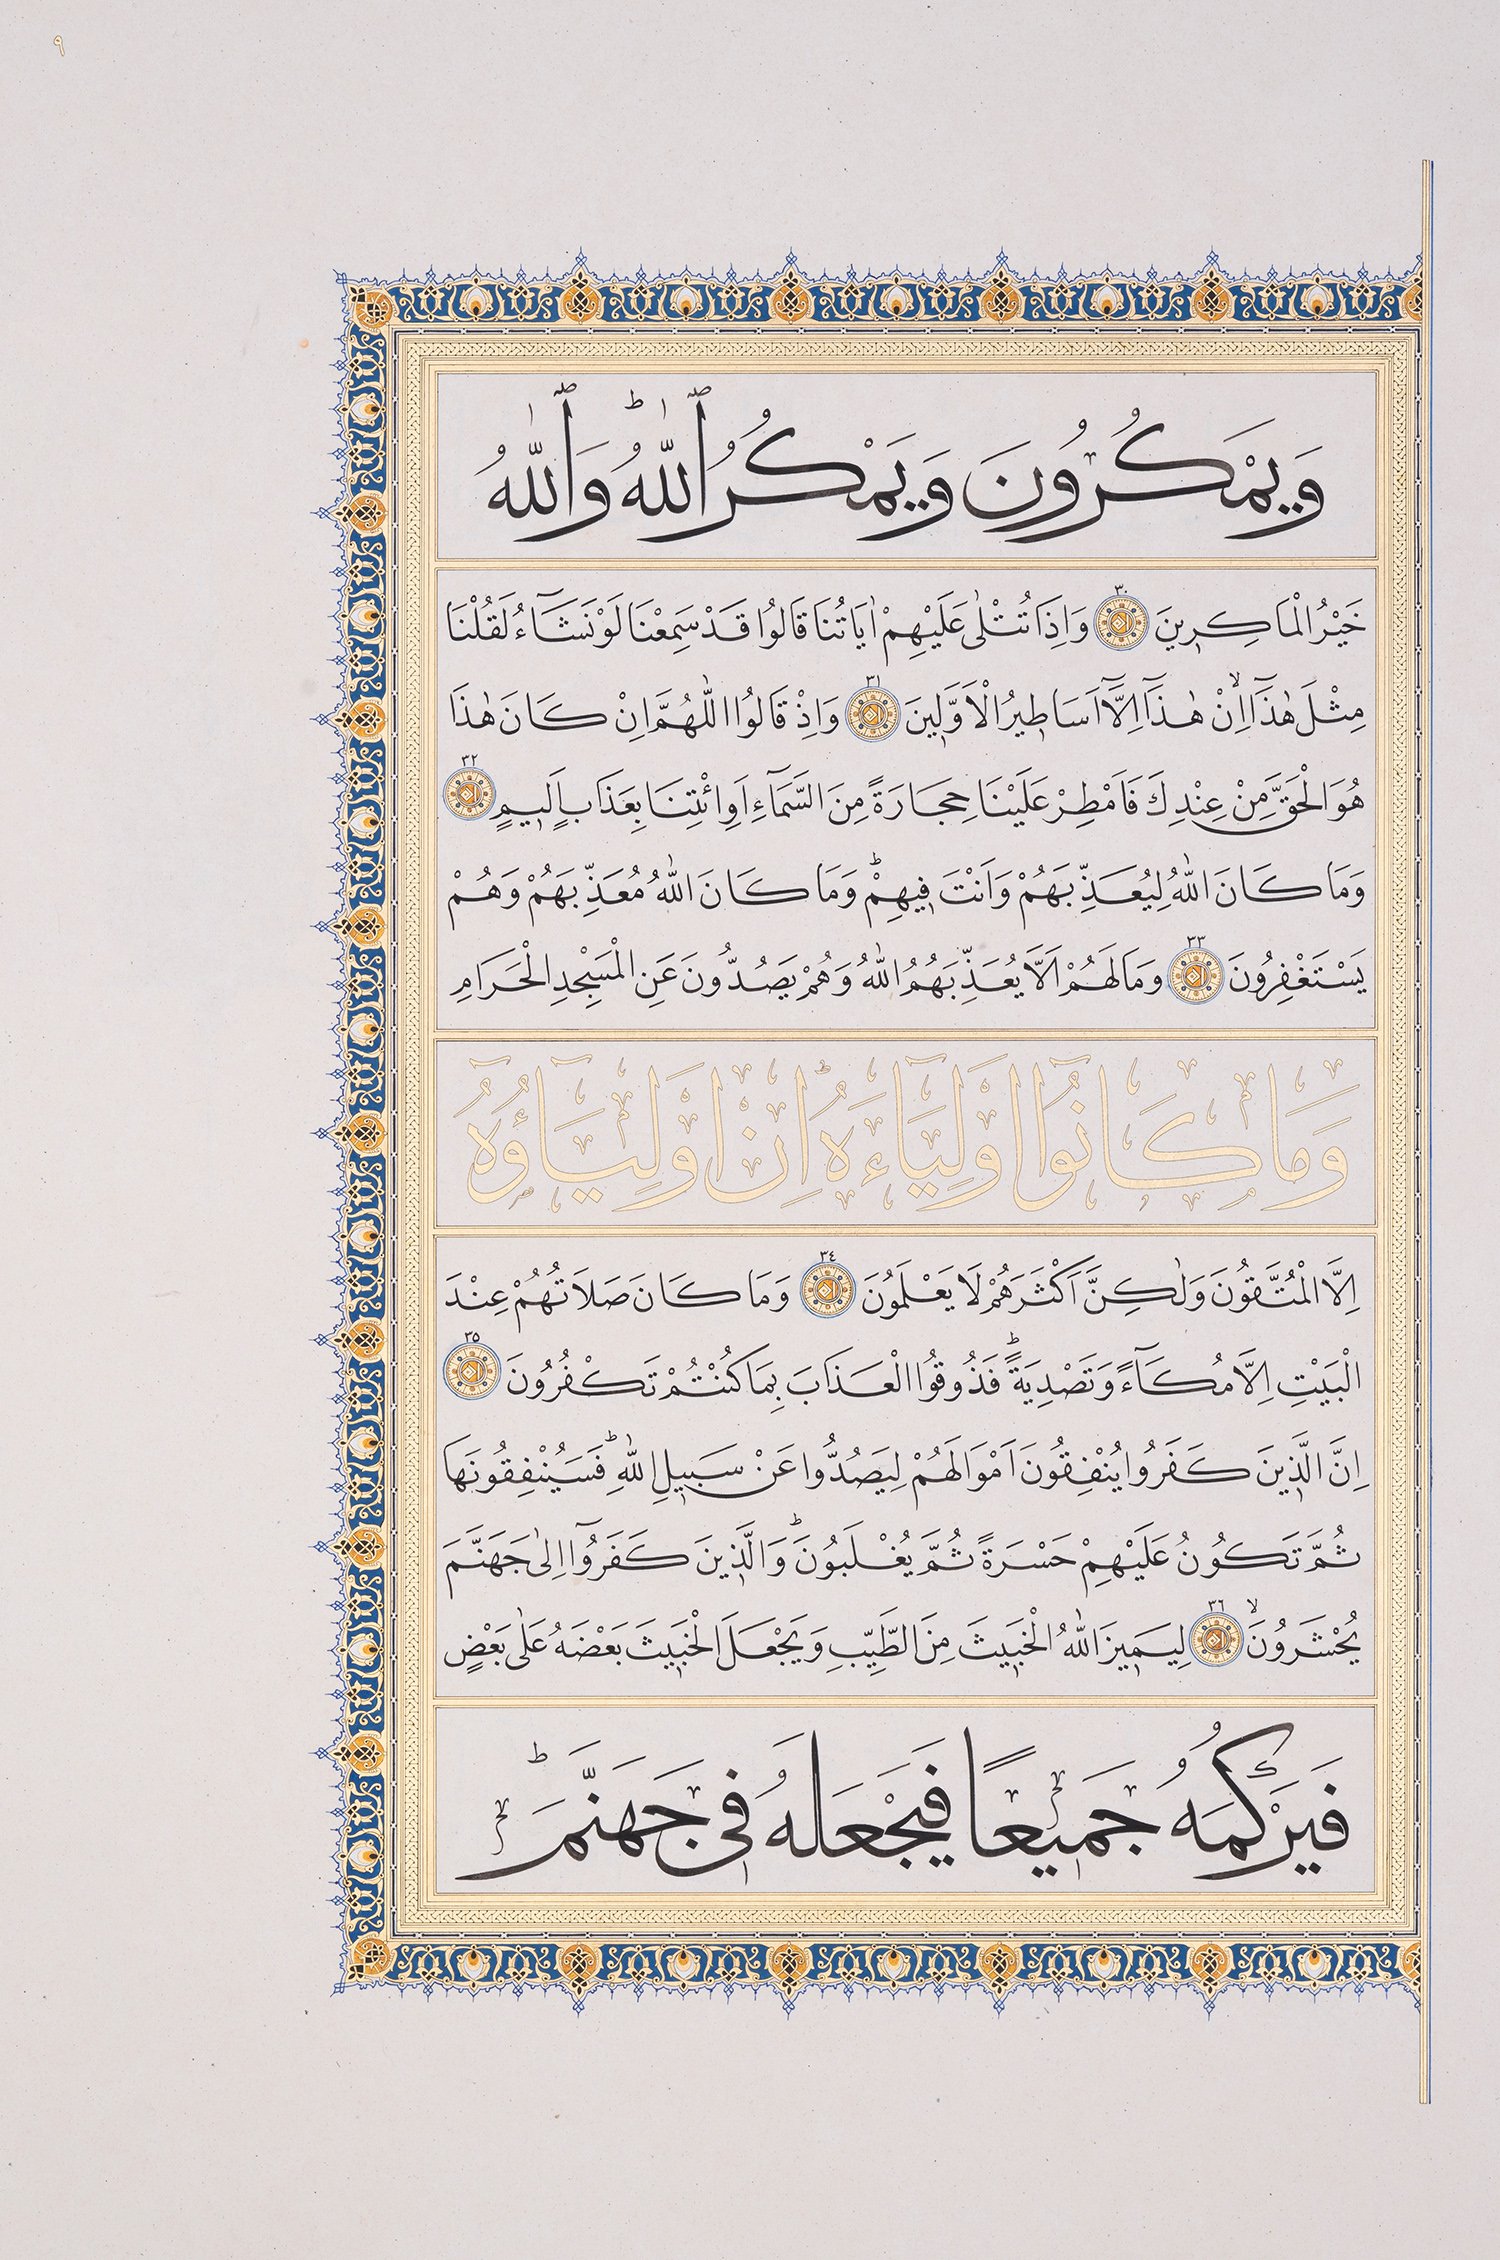 ٩
وَيَمْكُرُونَ وَيَمْكُرُ ٱللّٰهُ ۜ وَٱللّٰهُ
خَيْرُ الْمَاكِرِينَ ٣٠ وَاِذَا تُتْلٰى عَلَيْهِمْ اٰيَاتُنَا قَالُوا قَدْ سَمِعْنَا لَوْ نَشَٓاءُ لَقُلْنَا
مِثْلَ هٰذَٓا اِنْ هٰذَٓا اِلَّٓا اَسَاطِيرُ الْاَوَّلِينَ ٣١ وَاِذْ قَالُوا اللّٰهُمَّ اِنْ كَانَ هٰذَا
هُوَ الْحَقَّ مِنْ عِنْدِكَ فَاَمْطِرْ عَلَيْنَا حِجَارَةً مِنَ السَّمَٓاءِ اَوِ ائْتِنَا بِعَذَابٍ اَلِيمٍ ٣٢
وَمَا كَانَ اللّٰهُ لِيُعَذِّبَهُمْ وَاَنْتَ فِيهِمْ ط وَمَا كَانَ اللّٰهُ مُعَذِّبَهُمْ وَهُمْ
يَسْتَغْفِرُونَ ٣٣ وَمَا لَهُمْ اَلَّا يُعَذِّبَهُمُ اللّٰهُ وَهُمْ يَصُدُّونَ عَنِ الْمَسْجِدِ الْحَرَامِ
وَمَا كَانُٓوا اَوْلِيَٓاءَهُ ط اِنْ اَوْلِيَٓاؤُهُٓ
اِلَّا الْمُتَّقُونَ وَلٰكِنَّ اَكْثَرَهُمْ لَا يَعْلَمُونَ ٣٤ وَمَا كَانَ صَلَاتُهُمْ عِنْدَ
الْبَيْتِ اِلَّا مُكَٓاءً وَتَصْدِيَةً ط فَذُوقُوا الْعَذَابَ بِمَا كُنْتُمْ تَكْفُرُونَ ٣٥
اِنَّ الَّذِينَ كَفَرُوا يُنْفِقُونَ اَمْوَالَهُمْ لِيَصُدُّوا عَنْ سَبِيلِ اللّٰهِ ط فَسَيُنْفِقُونَهَا
ثُمَّ تَكُونُ عَلَيْهِمْ حَسْرَةً ثُمَّ يُغْلَبُونَ ط وَالَّذِينَ كَفَرُٓوا اِلٰى جَهَنَّمَ
يُحْشَرُونَ لا ٣٦ لِيَمِيزَ اللّٰهُ الْخَبِيثَ مِنَ الطَّيِّبِ وَيَجْعَلَ الْخَبِيثَ بَعْضَهُ عَلٰى بَعْضٍ
فَيَرْكُمَهُ جَمِيعًا فَيَجْعَلَهُ فِى جَهَنَّمَ ط